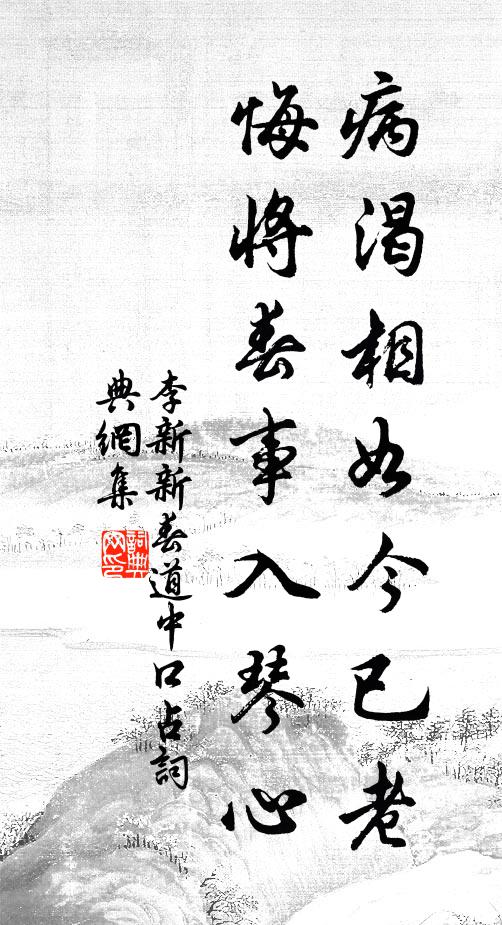 病渴相如今已老
悔将春事入琴心
李新新春道中口占詞
典網集
詞典
网印